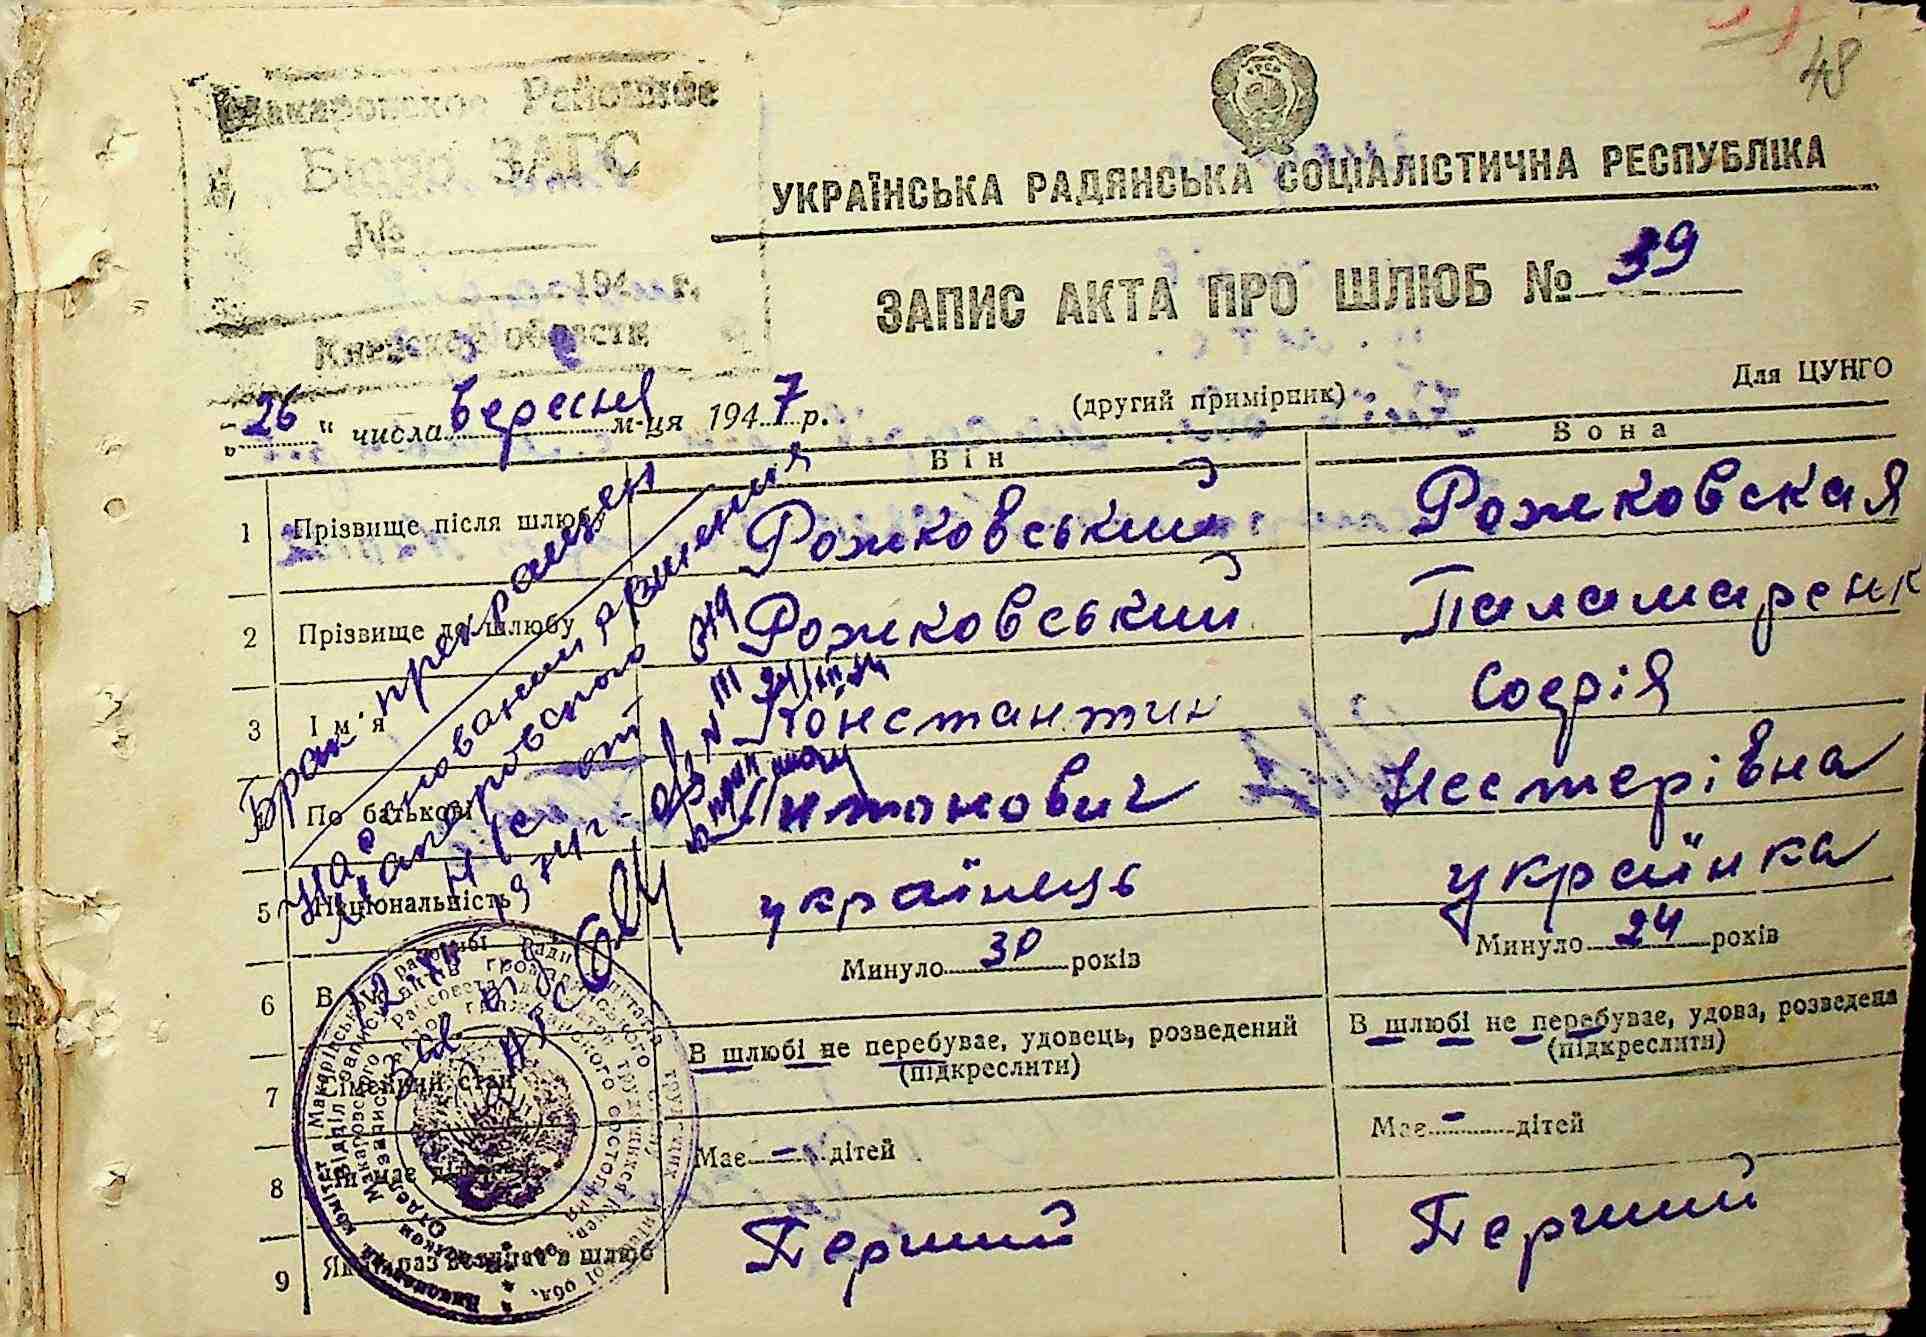 48
Макаровское Районное
Бюро ЗАГС
№
194 г.
Киевской области
УКРАЇНСЬКА РАДЯНСЬКА СОЦІАЛІСТИЧНА РЕСПУБЛІКА
ЗАПИС АКТА ПРО ШЛЮБ № 39
Для ЦУНГО
(другий примірник)
„26" числа вересня м-ця 1947 р.
Він Вона
1 Прізвище після шлюбу Рожковський Рожковская
2 Прізвище до шлюбу Рожковський Паламаренк
3 Ім'я Константин Софія
4 По батькові Антонович Нестерівна
5 Національність українець українка
6 В Минуло 30 років Минуло 24 років
7 Сімейний стан В шлюбі не перебуває, удовець, розведений В шлюбі не перебуває, удова, розведена
(підкреслити) (підкреслити)
8 Має - дітей Має - дітей
9 Який раз вступає в шлюб Перший Перший
Брак прекращен
На основании решения
Макаровского